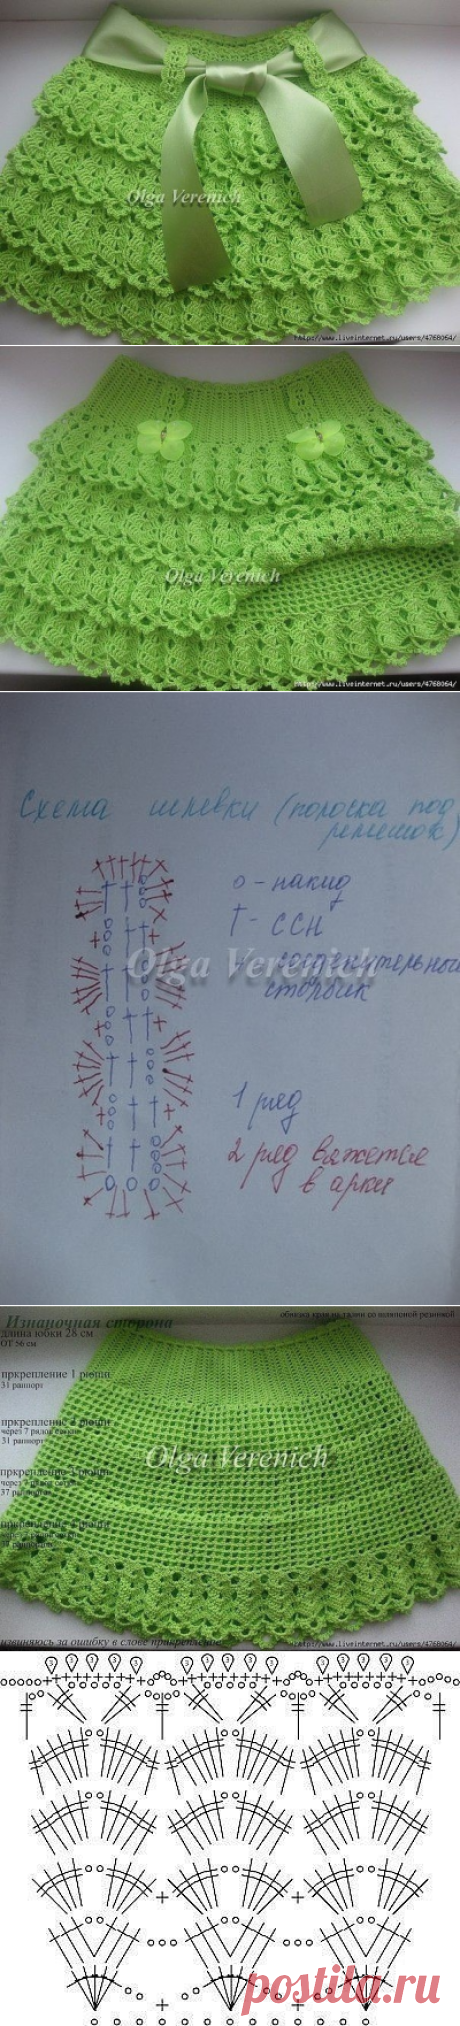 Olga Verenich
http://www.liveinternet.ru/users/4768064/
Olga Verenich
http://www.liveinternet.ru/users/4768064/
Схема шлевки (полоска под
ремешок)
о - накид
† - ССН
Olga Verenich
соединительный
столбик
1 ряд
2 ряд вяжется
в арки
Изнаночная сторона
обвязка края по талии со шляпной резинкой
длина юбки 28 см
ОТ 56 см
пркрепление 1 рюши
31 раппорт
пркрепление 2 рюши
через 7 рядов сетки
31 раппорт
Olga Verenich
пркрепление 3 рюши
через 7 рядов сетки
37 раппортов
пркрепление рюши
извиняюсь за ошибку в слове прикрепление
http://www.liveinternet.ru/users/4768064/
3 3 3 3 3 3 3 3 3 3 3 3 3 3 3
postila.ru